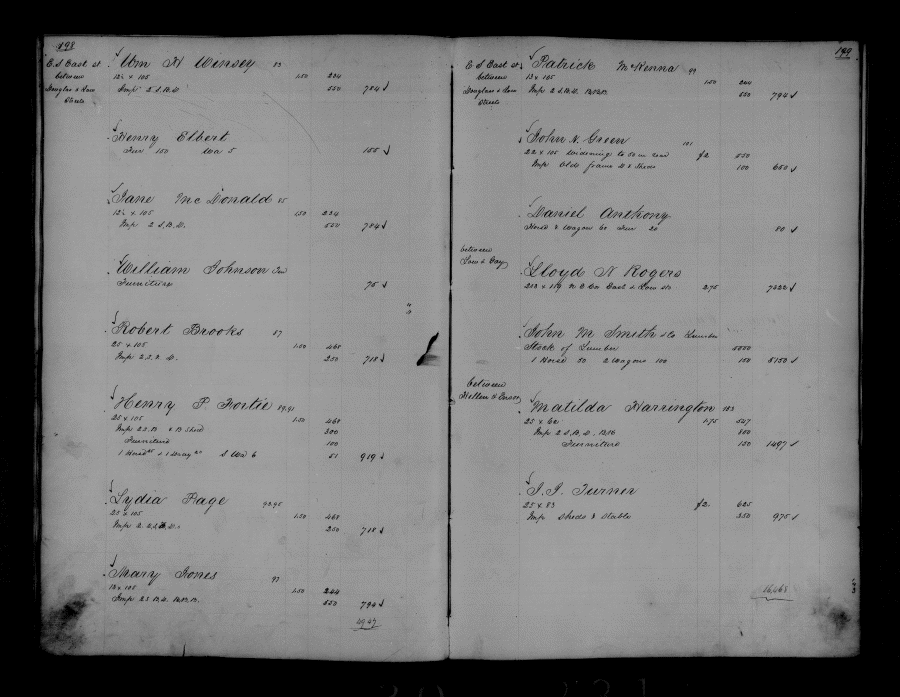 198
E S East st
between
Douglass &
Streets
Wm H Winsey 83
12½ x 105 1.50 234
Imp 2 S.B.D. 550 784
Henry Elbert
Fur 150 Wa 5 155
Jane McDonald 85
12½ x 105 1.50 234
Imp 2 S.B.D. 550 784
William Johnson Fur
Furniture 75
Robert Brooks 87
25 x 105 1.50 468
Imp 2 S. D. 250 718
Henry P. Fortie 89.91
25 x 105 1.50 468
Imp 2 S.B & B Shed 300
Furniture 100
1 Horse & 1 Dray S Wa 6 51 919
Lydia Page 93.95
25 x 105 1.50 468
Imp 2 250 718
Mary Jones 97
13 x 105 1.50 244
Imp 2 S B.D. B.B.B. 550 794
4947
199
E S East st
between
Douglass &
Streets
Patrick McKenna 99
13 x 105 1.50 244
Imp 2 S.B.D. B.B.B. 550 794
John N. Green 101
22 x 105 widening to 50 in rear f2 550
Imp Old frame D & Sheds 100 650
Daniel Anthony
Horse & Wagon 60 Fur 20 80
between
Low & Gay
Lloyd N Rogers
2.75 7422
John M Smith & Co Lumber
Stock of Lumber 5000
1 Horse 50 2 Wagons 100 150 5150
between
Hillen & Ensor
Matilda Harrington 123
25 x 1.75 547
Imp 2 S.B.D. 800
Furniture 150 1497
J. J. Turner
25 x 83 f2. 625
Imp Sheds & Stable 350 975
16,468